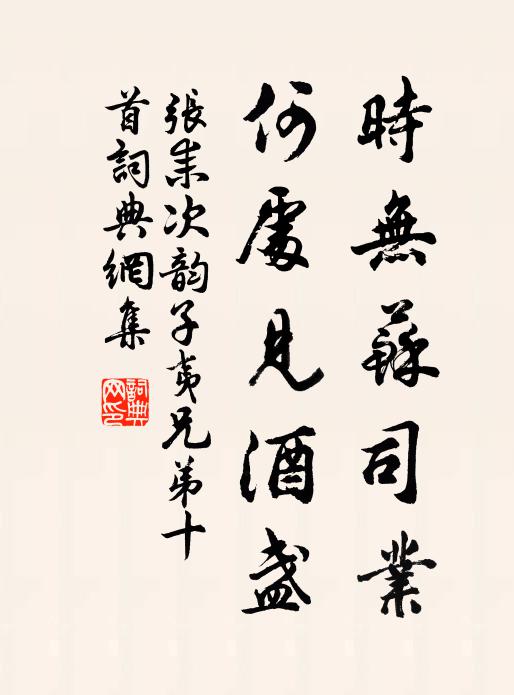 時無蘇司業
何處見酒盞
張耒次韵子夷兄弟十
首詞典網集
詞典
网印